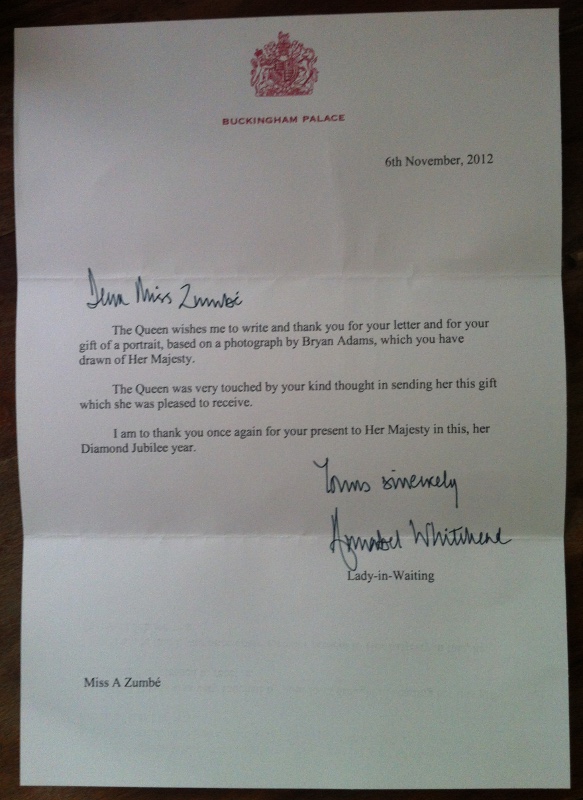 BUCKINGHAM PALACE
6th November, 2012
Dear Miss Zumbé
The Queen wishes me to write and thank you for your letter and for your
gift of a portrait, based on a photograph by Bryan Adams, which you have
drawn of Her Majesty.
The Queen was very touched by your kind thought in sending her this gift
which she was pleased to receive.
I am to thank you once again for your present to Her Majesty in this, her
Diamond Jubilee year.
Yours sincerely
Annabel Whitehead
Lady-in-Waiting
Miss A Zumbé